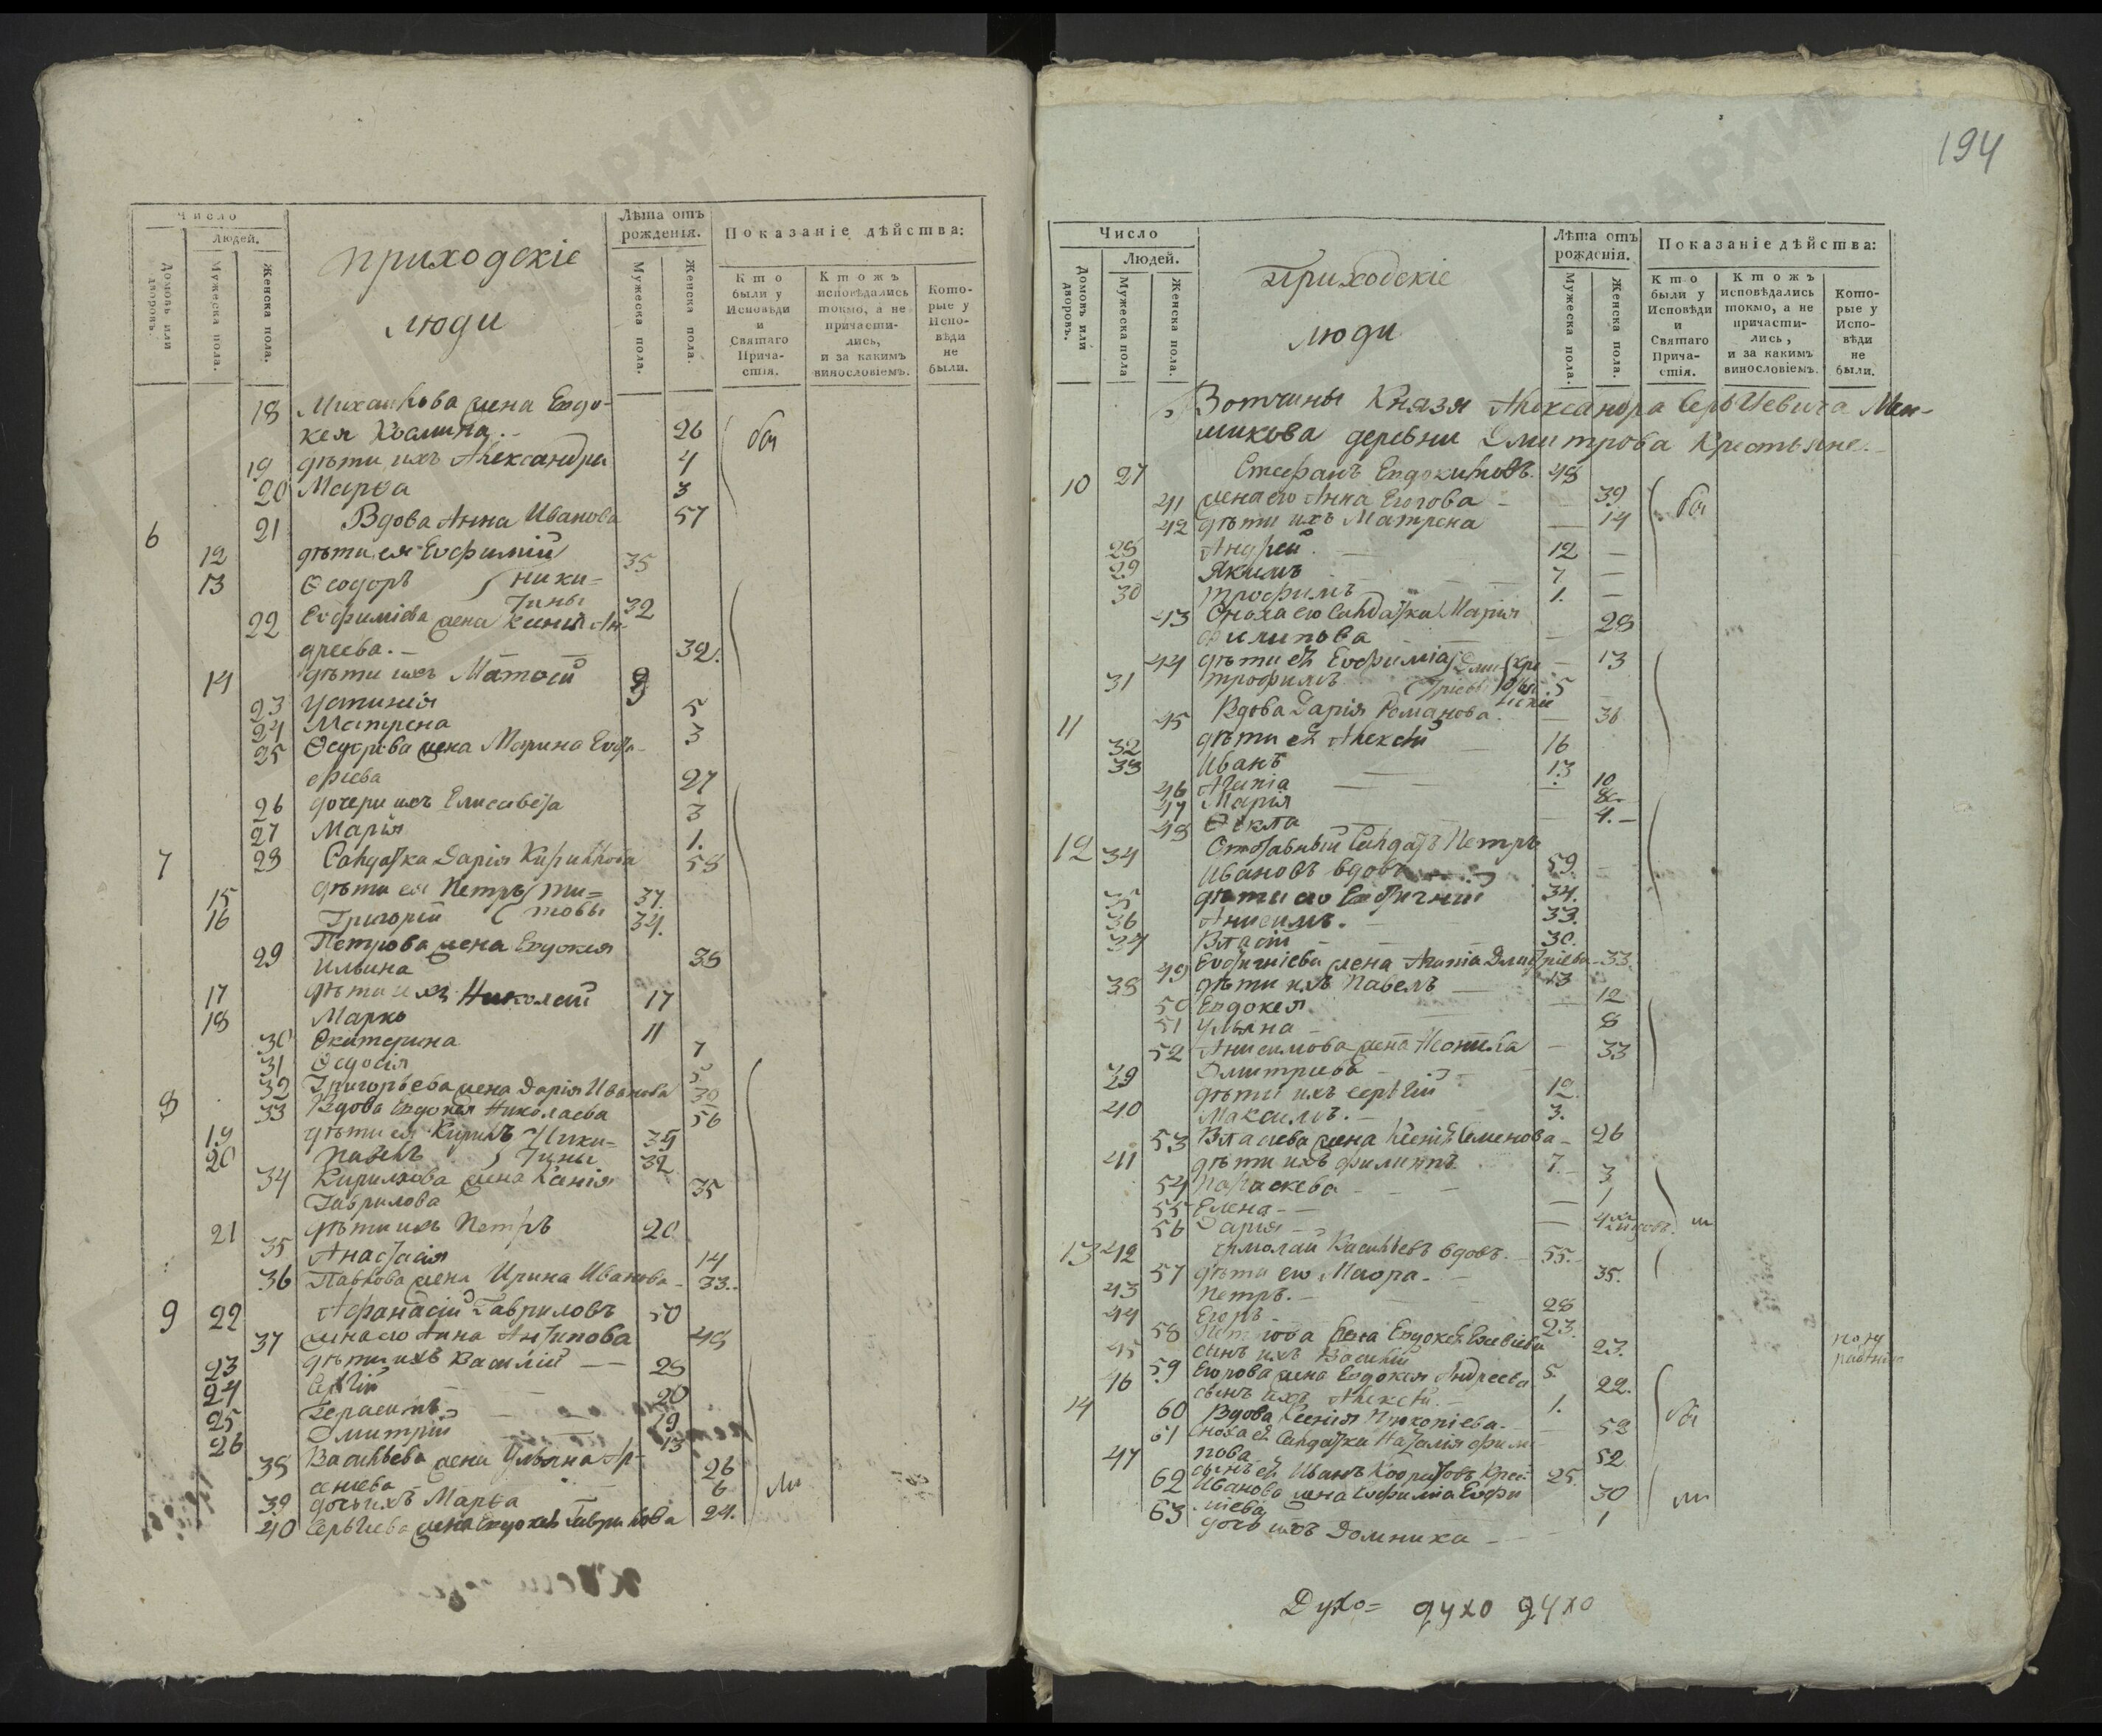 Число
Людей.
Домовъ или дворовъ.
Мужеска пола.
Женска пола.
приходскіе
люди
Лѣта отъ
рожденія.
Мужеска пола.
Женска пола.
Показаніе дѣйства:
Кто были у Исповѣди и Святаго Прича-стія.
Ктожъ исповѣдались токмо, а не причасти-лись, и за какимъ винословіемъ.
Кото-рые у Испо-вѣди не были.
18 Михайлова жена Евдо-
кея 26
19 дѣти ихъ Александра 4
20 Марѳа 3
6 21 Вдова Анна Иванова 57
12 дѣти ея Евфимій 35
13 Ѳеодоръ Ники=
тины 32
22 Евфиміева жена Ксенія Ан
дреева. 32.
14 дѣти ихъ Матѳей 9
23 Устинія 5
24 Матрена 3
25 Ѳедорова жена Марина
27
26 дочери ихъ Елисавета 3
27 Марія 1.
7 28 Салдатка Дарія Кирилова 58
15 дѣти ея Петръ Ти=
16 Григорій товы 37. 34.
29 Петрова жена Евдокея
Ильина 38
17 дѣти ихъ Николай 17
18 Марко 11
30 Екатерина 7
31 Ѳедосія 5
32 Григорьева жена Дарія Иванова 30
8 33 Вдова Евдокея Николаева 56
19 дѣти ея Кирилъ Ники= 35
20 Павелъ тины 32
34 Кирилова жена Ксенія
Гаврилова 35
21 дѣти ихъ Петръ 20
35 Анастасія 14
36 Павлова жена Ирина Иванова 33.
9 22 Афанасій Гавриловъ 50
37 жена его Анна Антипова 48
23 дѣти ихъ Василій 28
24 Сергій 20
25 Герасимъ 19
26 Дмитрій 13
38 Васильева жена Ульяна Ар-
сеніева 26
39 дочь ихъ Марѳа 6
40 Сергѣева жена Евдокея Гаврилова 24.
194
Число
Людей.
Домовъ или дворовъ.
Мужеска пола
Женска пола.
Приходскіе
люди
Лѣта отъ
рожденія.
Мужеска пола.
Женска пола.
Показаніе дѣйства:
Кто были у Исповѣди и Святаго Прича-стія.
Ктожъ исповѣдались токмо, а не причасти-лись, и за какимъ винословіемъ.
Кото-рые у Испо-вѣди не были.
Вотчины Князя Александра Сергѣевича Мен-
шикова деревни Дмитрова Крестьяне.
10 27 Стефанъ Евдокимовъ. 48
41 жена его Анна Егорова 39
42 дѣти ихъ Матрена 14
28 Андрей. 12
29 Якимъ 7
30 трофимъ 1.
43 Сноха его Салдатка Марія
Филипова 28
44 дѣти ея Евфимія 13
31 трофимъ 5
11 45 Вдова Дарія Романова. 36
32 дѣти ея Алексѣй 16
33 Иванъ 13
46 Агапіа 10
47 Марія 8
48 Ѳекла 4.
12 34 Отставный Салдатъ Петръ
Ивановъ вдовъ 59.
35 дѣти его 34.
36 Анисимъ. 33.
37 Власій 30.
49 жена Агапіа Дмитріева 33.
38 дѣти ихъ Павелъ 13
50 Евдокея 12
51 Ульяна 8
52 Анисимова жена Неонила 33
Дмитріева
39 дѣти ихъ Сергѣй 12
40 Максимъ. 3.
53 Власіева жена Ксенія Семенова 26
41 дѣти ихъ Филиппъ 7.
54 Параскева 3
55 Елена 1
56 Дарія
13 42 Ермолай Васильевъ вдовъ. 55.
57 дѣти его Мавра 35.
43 Петръ. 28
44 Егоръ 23.
58 Петрова жена Евдокея 23.
45 сынъ ихъ Василій 5.
59 Егорова жена Евдокея Андреева 22.
46 сынъ ихъ Алексѣй. 1.
14 60 Вдова Ксенія Прокопіева 52
61 Сноха ея Салдатка Наталія Фили
пова 52
47 сынъ ея Иванъ 25.
62 Иванова жена Евфиміа Евфи
міева 30
63 дочь ихъ Домника 1
Духо= духо духо